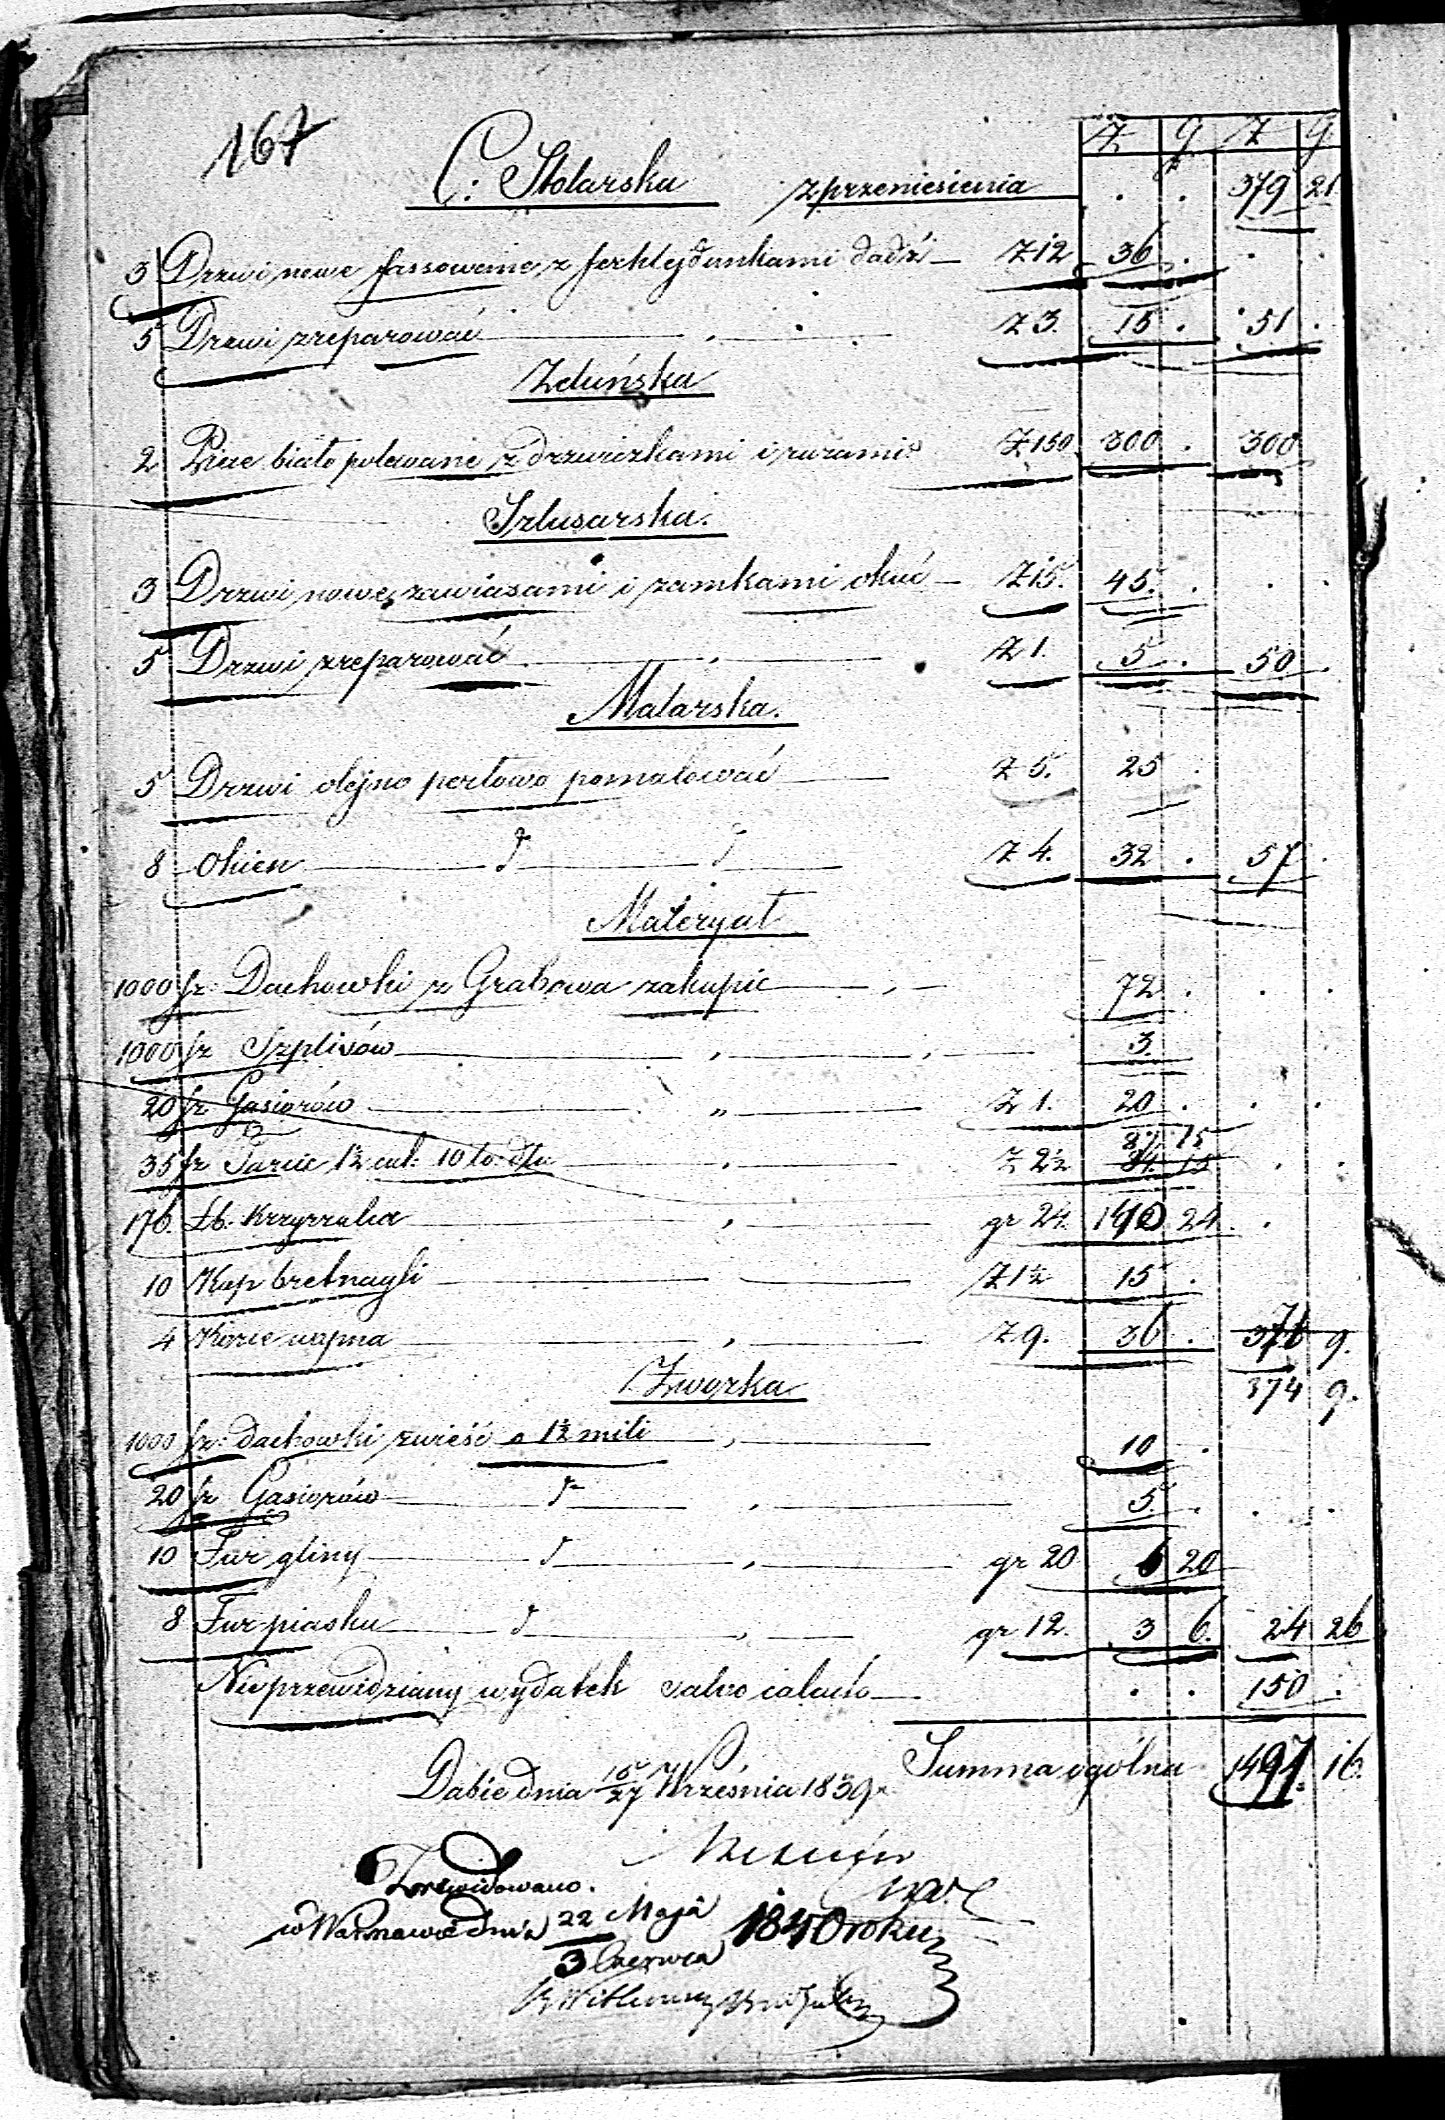 167
Z g Z g
C: Stolarska z przeniesienia . . 379 21
3 Drzwi nowe fassowane z ferklejdunkami dadź Z 12 36 . . .
5 Drzwi zreparować Z 3. 15 . 51 .
Zduńska
2 Piece biało polewane z drzwiczkami i rurami Z 150 300 . 300
Szlusarska.
3 Drzwi nowe zawiasami i zamkami okuć Z 15. 45. . . .
5 Drzwi zreparować Z 1. 5 . 50 .
Malarska.
5 Drzwi olejno perłowo pomalować Z 5. 25 .
8 Okien d d Z 4. 32 . 57 .
Materyał
1000 sz: Dachowki z Grabowa zakupić 72 . . .
1000 sz Szplisów 3.
20 sz Gąsiorów Z 1. 20 . . .
87 15
35 sz Tarcic 1½ cal: 10 ło: dłu: Z 2½ 84 15 . .
176. Łb. Krzyżulca gr 24. 140 24 .
10 Kup bretnagli Z 1½ 15 .
4 Korce wapna Z 9. 36 . 376 9.
374 9.
Zwózka
1000 sz: dachowki zwieść o 1½ mili 10 .
20 sz Gąsiorów d 5. . . .
10 Fur gliny d gr 20 6 20
8 Fur piasku d gr 12. 3 6. 24 26
Nieprzewidziany wydatek salvo calculo . . 150 .
Summa ogólna 1497. 16.
Dąbie dnia 15/27 Września 1839 r.
Zrewidowano.
w Warszawie dnia 22 Maja 1840 roku
3 Czerwca